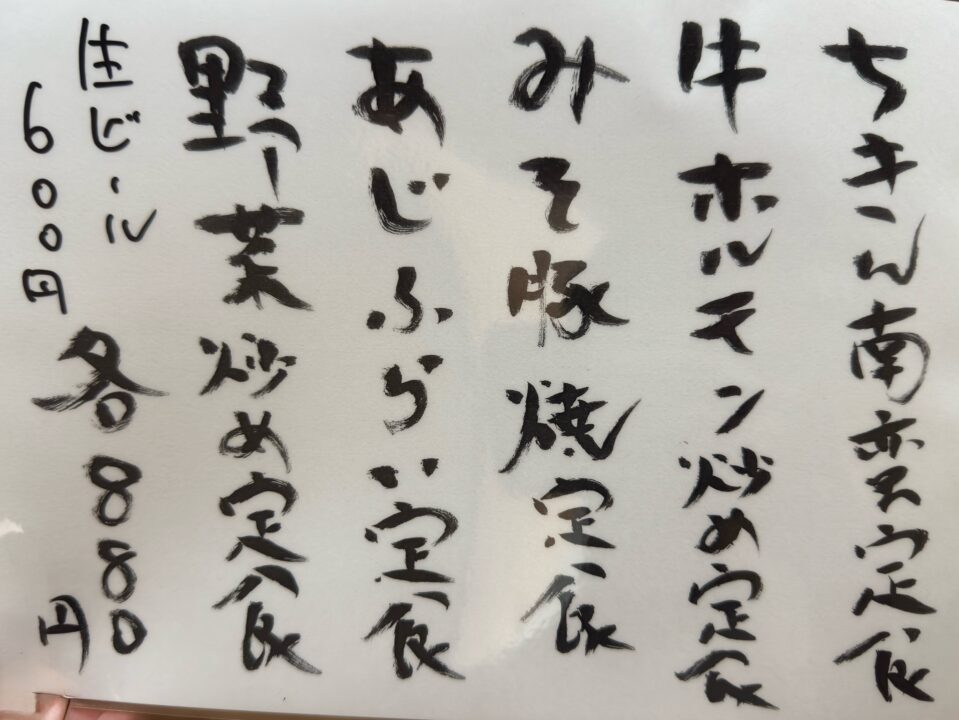 ちきん南蛮定食
牛ホルモン炒め定食
みそ豚焼定食
あじふらい定食
野菜炒め定食
各880円
生ビール
600円